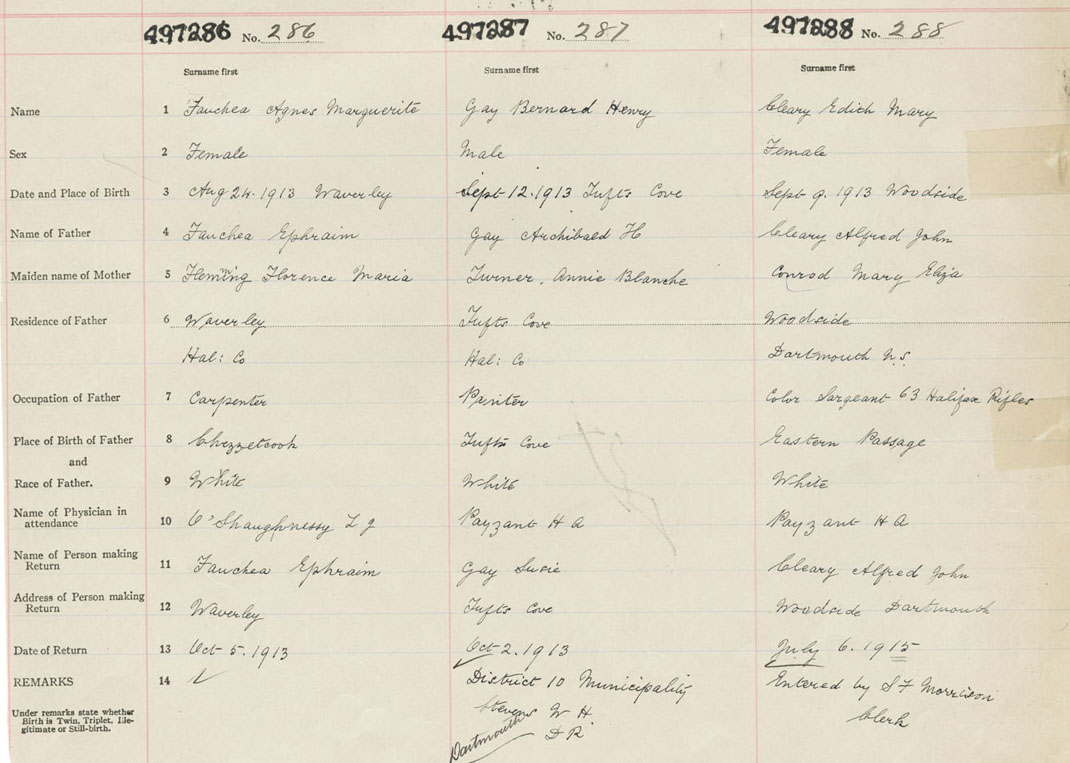 497286 No. 286 497287 No. 287 497288 No. 288
Surname first Surname first Surname first
Name 1 Fauchea Agnes Marguerite Gay Bernard Henry Cleary Edith Mary
Sex 2 Female Male Female
Date and Place of Birth 3 Aug 24. 1913 Waverley Sept 12. 1913 Tufts Cove Sept 9. 1913 Woodside
Name of Father 4 Fauchea Ephraim Gay Archibald H Cleary Alfred John
Maiden name of Mother 5 Fleming Florence Maria Turner, Annie Blanche Conrod Mary Eliza
Residence of Father 6 Waverley Tufts Cove Woodside
Hal: Co Hal: Co Dartmouth N.S.
Occupation of Father 7 Carpenter Painter Color Sargeant 63 Halifax Rifles
Place of Birth of Father 8 Chezzetcook Tufts Cove Eastern Passage
and
Race of Father. 9 White White White
Name of Physician in
attendance 10 O'Shaughnessy L J Payzant H A Payzant H A
Name of Person making
Return 11 Fauchea Ephraim Gay Susie Cleary Alfred John
Address of Person making
Return 12 Waverley Tufts Cove Woodside Dartmouth
Date of Return 13 Oct 5. 1913 Oct 2. 1913 July 6. 1915
REMARKS 14 District 10 Municipality Entered by S F Morrison
Under remarks state whether
Birth is Twin, Triplet, Ille-
gitimate or Still-birth.
Stevens W H. Clerk
Dartmouth D R